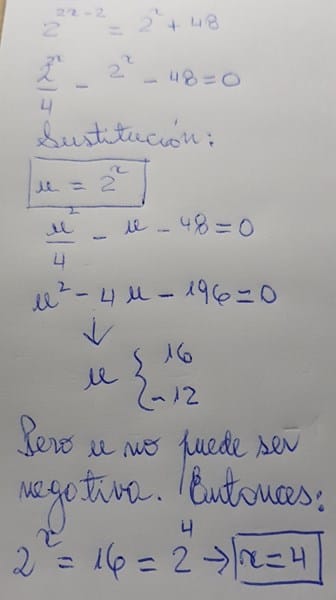 2^{2x-2} = 2^x + 48
\frac{2^{2x}}{4} - 2^x - 48 = 0
Sustitución:
u = 2^x
\frac{u^2}{4} - u - 48 = 0
u^2 - 4u - 196 = 0
↓
u { 16
-12
Pero u no puede ser
negativa. Entonces:
2^x = 16 = 2^4 → x = 4